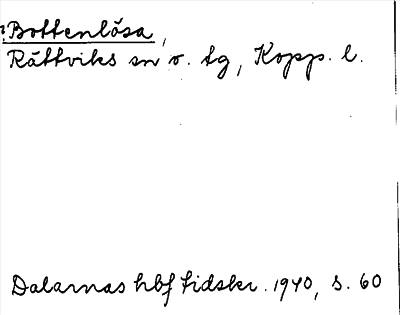 ?Bottenlösa,
Rättviks sn o. tg, Kopp. l.
Dalarnas hbf tidskr. 1940, s. 60